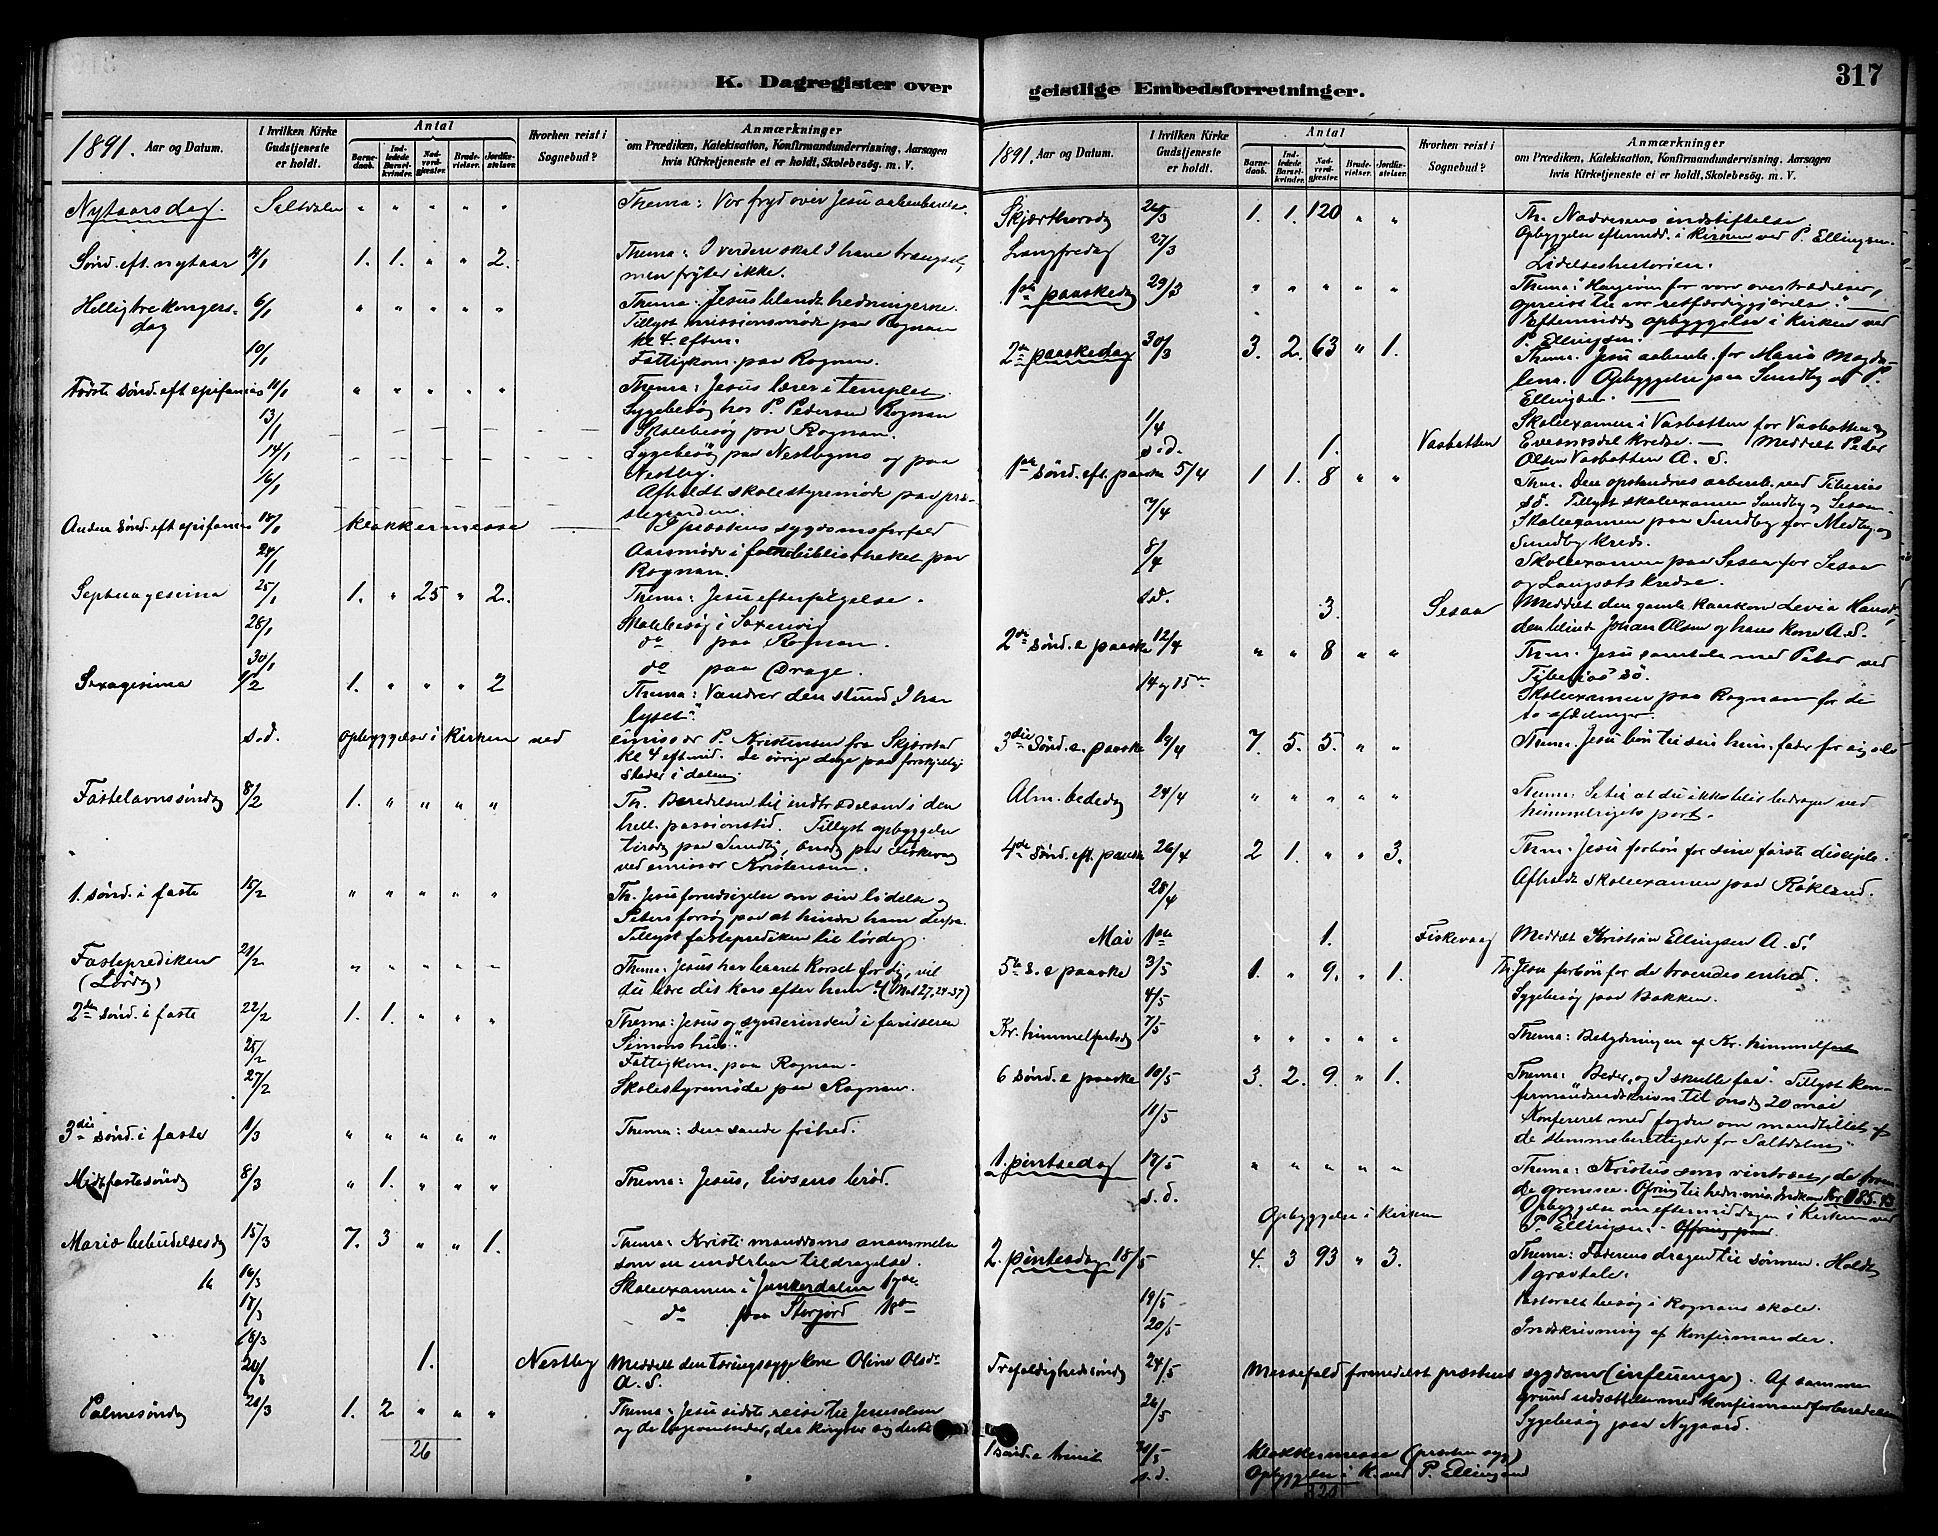 K. Dagregister over
1891. Aar og Datum.
I hvilken Kirke Gudstjeneste er holdt.
Antal
Barnedaab.
Indledede Barselkvinder.
Nadverdgjæster.
Brudevielser.
Jordfæstelser.
Hvorhen reist i Sognebud?
Anmærkninger
om Prædiken, Katekisation, Konfirmandundervisning, Aarsagen
hvis Kirketjeneste ei er holdt, Skolebesøg. m. V.
Nytaarsdag. Saltdalen " " " " " Thema: Vor fryd over Jesu aabenbarelse.
Sønd. eft. nytaar 4/1 1. 1. " " 2. Thema: I verden skal I have trængsel,
men frygter ikke.
Helligtrekongers- 6/1 " " " " " Thema: Jesus blandt hedningerne.
dag Tillyst missionsmøde paa Rognan
kl 4 efterm.
10/1 Fattigkom. paa Rognan.
Første sønd. eft epifanias 11/1 " " " " " Thema: Jesus lærer i templet.
Sygebesøg hos P. Pedersen Rognan
13/1 Skolebesøg paa Rognan.
14/1 Sygebesøg paa Nestbymo og paa
Nestby.
16/1 Afholdt skolestyremøde paa præ-
stegaarden.
Anden sønd. eft epifanias 18/1 klokkermesse — I præstens sygdomsforfald
24/1 Aarsmøde i folkebibliotheket paa
Rognan.
Septuagesima 25/1 1. " 25 " 2. Thema: Jesu efterfølgelse.
28/1 Skolebesøg i Saxenvig
do paa Rognan.
30/1 do paa Drage.
Sexagesima 1/2 1. " " " 2 Thema: "Vandrer den stund I har
lyset".
s.d. opbyggelse i kirken ved emissær P. Kristensen fra Skjærstad
kl 4 eftmid. De øvrige dage paa forskjellige
steder i dalen.
Fastelavnssøndag 8/2 1. " " " " Th. Beredelsen til indtrædelsen i den
hell. passionstid. Tillyst opbyggelse
tirsdag paa Sundby, onsdag paa Fiskevaag
ved emissær Kristensen.
1. sønd. i faste 15/2 " " " " " Th. Jesu forudsigelse om sin lidelse og
Peters forsøg paa at hindre ham derfra.
Tillyst fasteprediken til lørdag.
Fasteprediken 21/2 " " " " " Thema: Jesus har baaret korset for dig, vil
(Lørdag) du bære dit kors efter ham? (Mat 27, 24-37)
2den sønd. i faste 22/2 1. 1. " " " Thema: Jesus og "synderinden" i farisæeren
Simons hus."
25/2 Fattigkom. paa Rognan.
27/2 Skolestyremøde paa Rognan.
3die sønd. i faste 1/3 " " " " " Thema: Den sande frihed.
Midfastesøndag 8/3 " 1. " " " Thema: Jesus, Livsens brød.
Mariæ bebudelsesdag 15/3 7. 3 " " 1. Thema: Kristi manddoms anammelse
som en underbar tildragelse.
16/3 Skoleexamen i Junkerdalen
17/3 do paa Storjord
18/3
20/3 1. Nestby Meddelt den tæringssyge kone Oline Olsdr
A. S.
Palmesøndag 22/3 1. 2 " " " Thema: Jesu sidste reise til Jerusalem
26
geistlige Embedsforretninger.
317
1891. Aar og Datum.
I hvilken Kirke Gudstjeneste er holdt.
Antal
Barnedaab.
Indledede Barselkvinder.
Nadverdgjæster.
Brudevielser.
Jordfæstelser.
Hvorhen reist i Sognebud?
Anmærkninger
om Prædiken, Katekisation, Konfirmandundervisning, Aarsagen
hvis Kirketjeneste ei er holdt, Skolebesøg. m. V.
Skjærthorsdag 26/3 1. 1. 120 " " Th. Nadverens indstiftelse
Opbyggelse eftermidd. i kirken ved P. Ellingsen.
Langfredag 27/3 Lidelseshistorien.
1ste paaskedag 29/3 " " " " " Thema: "Hengiven for vore overtrædelser,
opreist til vor retfærdiggjørelse."
Eftermiddag opbyggelse i kirken ved
P. Ellingsen.
2den paaskedag 30/3 3. 2. 63 " 1. Thema: Jesu aabenb. for Maria Magda-
lena. Opbyggelse paa Sundby af P.
Ellingsen.
1/4 Skoleexamen i Vasbotten for Vasbotten og
s.d. 1. Vasbotten Evensdal kredse. — Meddelt Peter
Olsen Vasbotten A. S.
1ste sønd. eft. paaske 5/4 1 1. 8 " " Them. Den opstandnes aabenb. ved Tiberias
sø. Tillyst skoleexamen Sundby og Sesaa.
7/4 Skoleexamen paa Sundby for Medby og
Sundby kreds.
8/4 Skoleexamen paa Sesaa for Sesaa
og Langsets kredse.
s.d. 3. Sesaa Meddelt den gamle kaarkone Levia Hansd.,
den blinde Johan Olsen og hans kone A. S.
2den sønd. e paaske 12/4 " " 8 " " Them. Jesu samtale med Peter ved
Tiberias sø.
14 og 15de Skoleexamen paa Rognan for de
to afdelinger.
3die sønd. e. paaske 19/4 7. 5. 5. " " Thema. Jesu bøn til sin him. fader for sig selv
Alm. bededag 24/4 " " " " " Thema: Se til at du ikke blir bedragen ved
himmelrigets port.
4de sønd. eft. paaske 26/4 2 1. " " 3. Them. Jesu forbøn for sine første disciple.
28/4 Afholdt skoleexamen paa Røkland.
Mai 1ste 1. Fiskevaag Meddelt Kristian Ellingsen A. S.
5te s. e paaske 3/5 1. " 9. " 1. Th. Jesu forbøn for de troendes enhed.
4/5 Sygebesøg paa Bakken.
Kr. himmelfartsdag 7/5 " " " " " Thema: Betydningen af Kr. himmelfart
6 sønd. e paaske 10/5 3. 2. 9. " 1. Thema: "Beder, og I skulle faa". Tillyst kon-
firmandindskrivn til onsdag 20 mai
11/5 Konfereret med fogden om mandtallet af
de stemmeberettigede for Saltdalen
1. pintsedag 17/5 " " " " " Thema: Kristus som vintræet, de troen-
s.d. Opbyggelse i kirken de grenene. Ofring til hedn.mis.
Opbyggelse om eftermiddagen i kirken ved
P. Ellingsen.
2. pintsedag 18/5 4. 3 93 " 3. Thema: Faderens dragen til sønnen. Holdt
1 gravtale.
19/5 Pastoralt besøg i Rognans skole.
20/5 Indskrivning af konfirmander.
Trefoldighedssøndag 24/5 Messefald formedelst præstens sygdom (influenza). Af samme
grund udsættelse med konfirmandforberedelsen
26/5 Sygebesøg paa Nygaard.
1 sønd. e trinit 31/5 klokkermesse (præsten syg)
s.d. Opbyggelse i K. ved P. Ellingsen
320